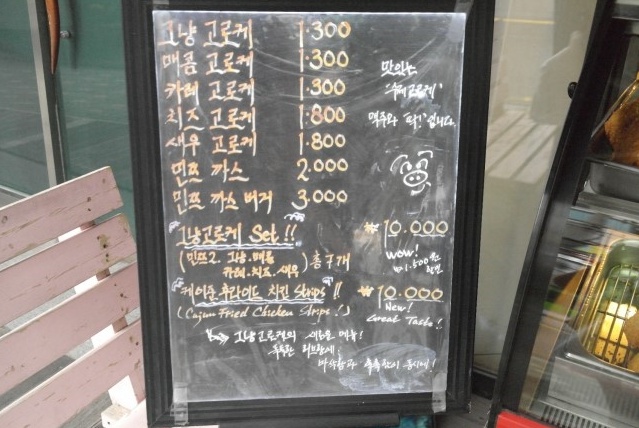 그냥 고로케 1.300
매콤 고로케 1.300
카레 고로케 1.300
치즈 고로케 1.800
새우 고로케 1.800
민쯔 까스 2.000
민쯔 까스 버거 3.000
맛있는
"수제고로케"
맥주와 "딱!"입니다.
그냥고로케 Set!! ₩10.000
(민쯔2. 그냥.매콤
카레.치즈.새우) 총7개
Wow!
₩1.500원
할인
케이준 후라이드 치킨 Strips!! ₩10.000
(Cajun Fried Chicken Strips!)
New!
Great Taste!
그냥고로케의 새로운 메뉴!
독특한 허브한세!
바삭함과 촉촉한맛 동시에!